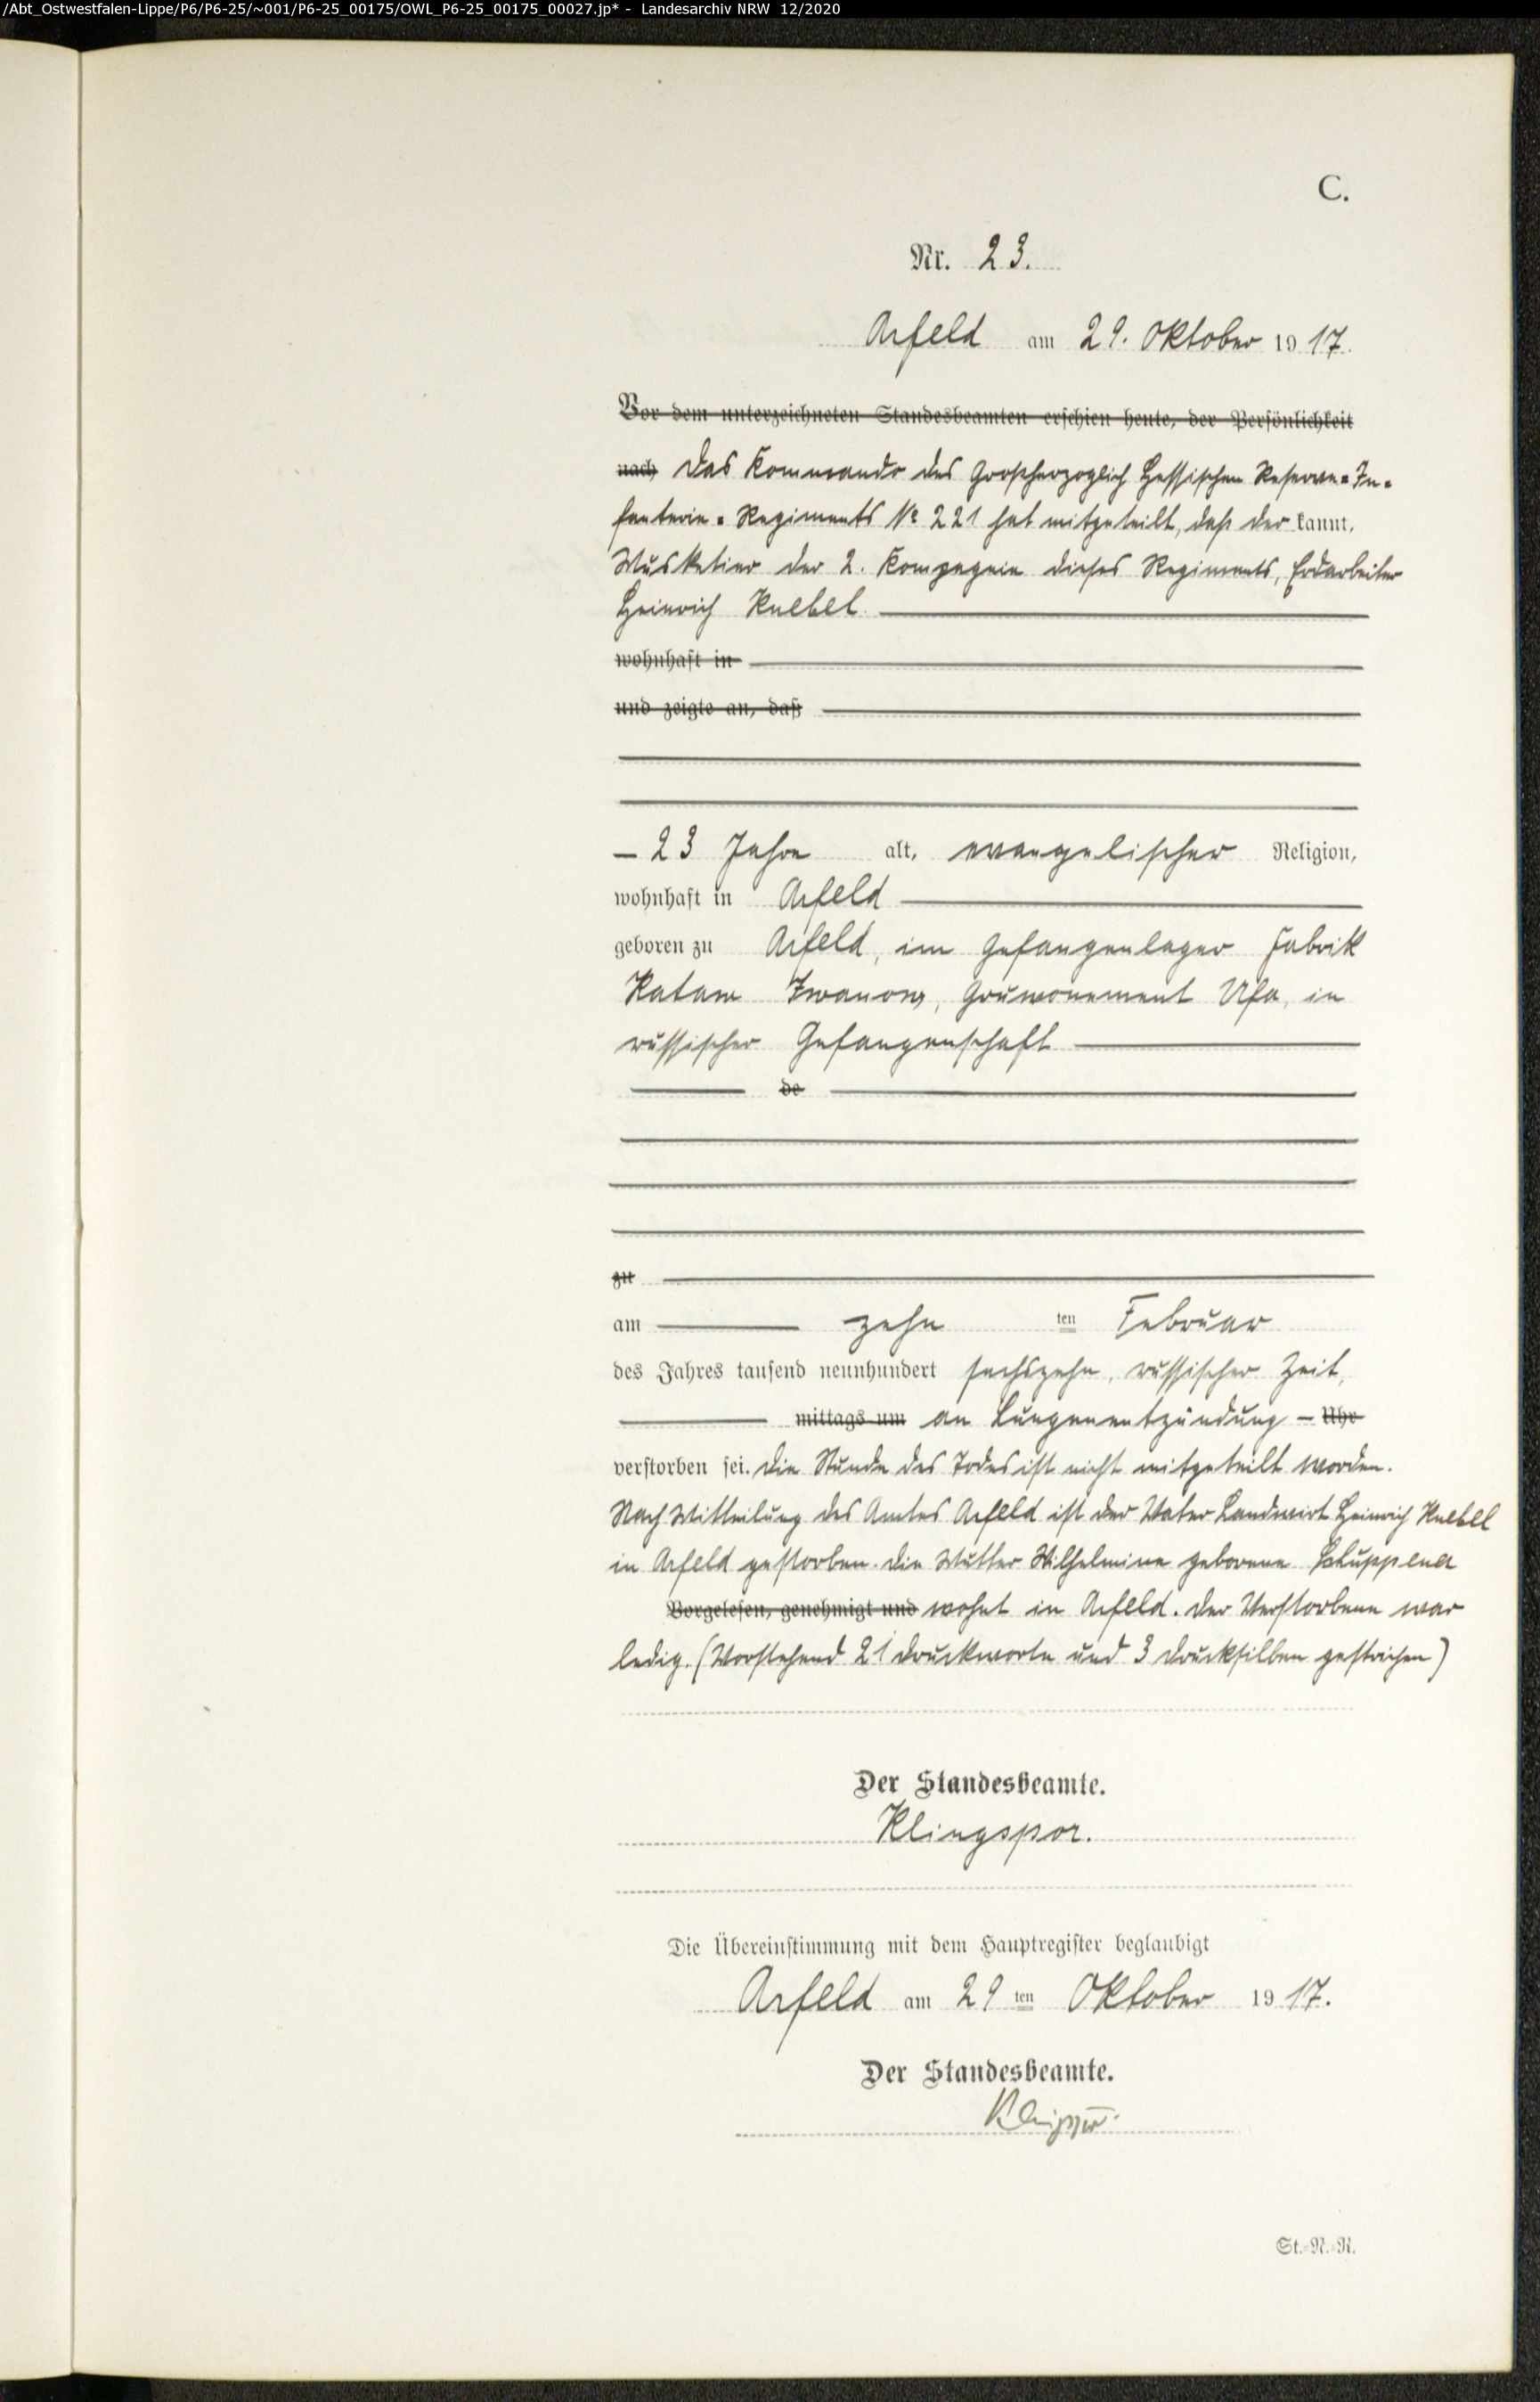 /Abt_Ostwestfalen-Lippe/P6/P6-25/~001/P6-25_00175/OWL_P6-25_00175_00027.jp* - Landesarchiv NRW 12/2020
C.
Nr. 23.
Arfeld am 29. Oktober 1917.
Vor dem unterzeichneten Standesbeamten erschien heute, der Persönlichkeit
nach Das Kommando des Großherzoglich Hessischen Reserve-In-
fanterie-Regiments No 221 hat mitgeteilt, daß der kannt,
Musketier der 2. Kompagnie dieses Regiments, Erdarbeiter
Heinrich Knebel
wohnhaft in
und zeigte an, daß
23 Jahre alt, evangelischer Religion,
wohnhaft in Arfeld
geboren zu Arfeld, im Gefangenlager Fabrik
Kataw Iwanow, Gouwonement Ufa, in
russischer Gefangenschaft
de
zu
am zehn ten Februar
des Jahres tausend neunhundert sechszehn, russischer Zeit,
mittags um an Lungenentzündung – Uhr
verstorben sei. Die Stunde des Todes ist nicht mitgeteilt worden.
Nach Mitteilung des Amtes Arfeld ist der Vater Landwirt Heinrich Knebel
in Arfeld gestorben. Die Mutter Wilhelmine geborene Schuppener
Vorgelesen, genehmigt und wohnt in Arfeld. Der Verstorbene war
ledig. (Vorstehend 21 Druckworte und 3 Drucksilben gestrichen)
Der Standesbeamte.
Klingspor.
Die Übereinstimmung mit dem Hauptregister beglaubigt
Arfeld am 29 ten Oktober 1917.
Der Standesbeamte.
Klingspor.
St.-N.-R.